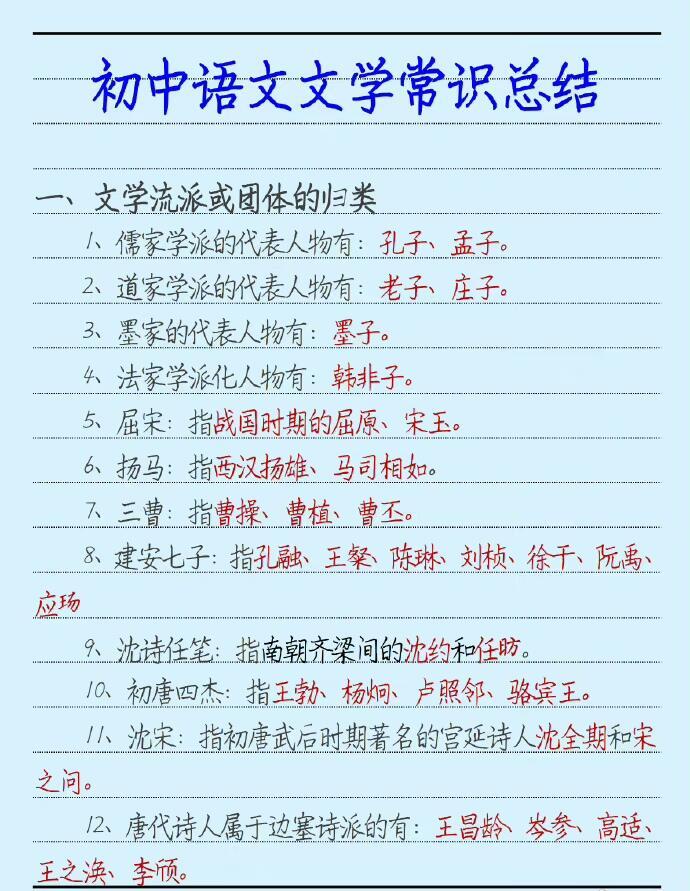 初中语文文学常识总结
一、文学流派或团体的归类
1、儒家学派的代表人物有：孔子、孟子。
2、道家学派的代表人物有：老子、庄子。
3、墨家的代表人物有：墨子。
4、法家学派化人物有：韩非子。
5、屈宋：指战国时期的屈原、宋玉。
6、扬马：指西汉扬雄、马司相如。
7、三曹：指曹操、曹植、曹丕。
8、建安七子：指孔融、王粲、陈琳、刘桢、徐干、阮禹、
应玚
9、沈诗任笔：指南朝齐梁间的沈约和任昉。
10、初唐四杰：指王勃、杨炯、卢照邻、骆宾王。
11、沈宋：指初唐武后时期著名的宫延诗人沈全期和宋
之问。
12、唐代诗人属于边塞诗派的有：王昌龄、岑参、高适、
王之涣、李颀。